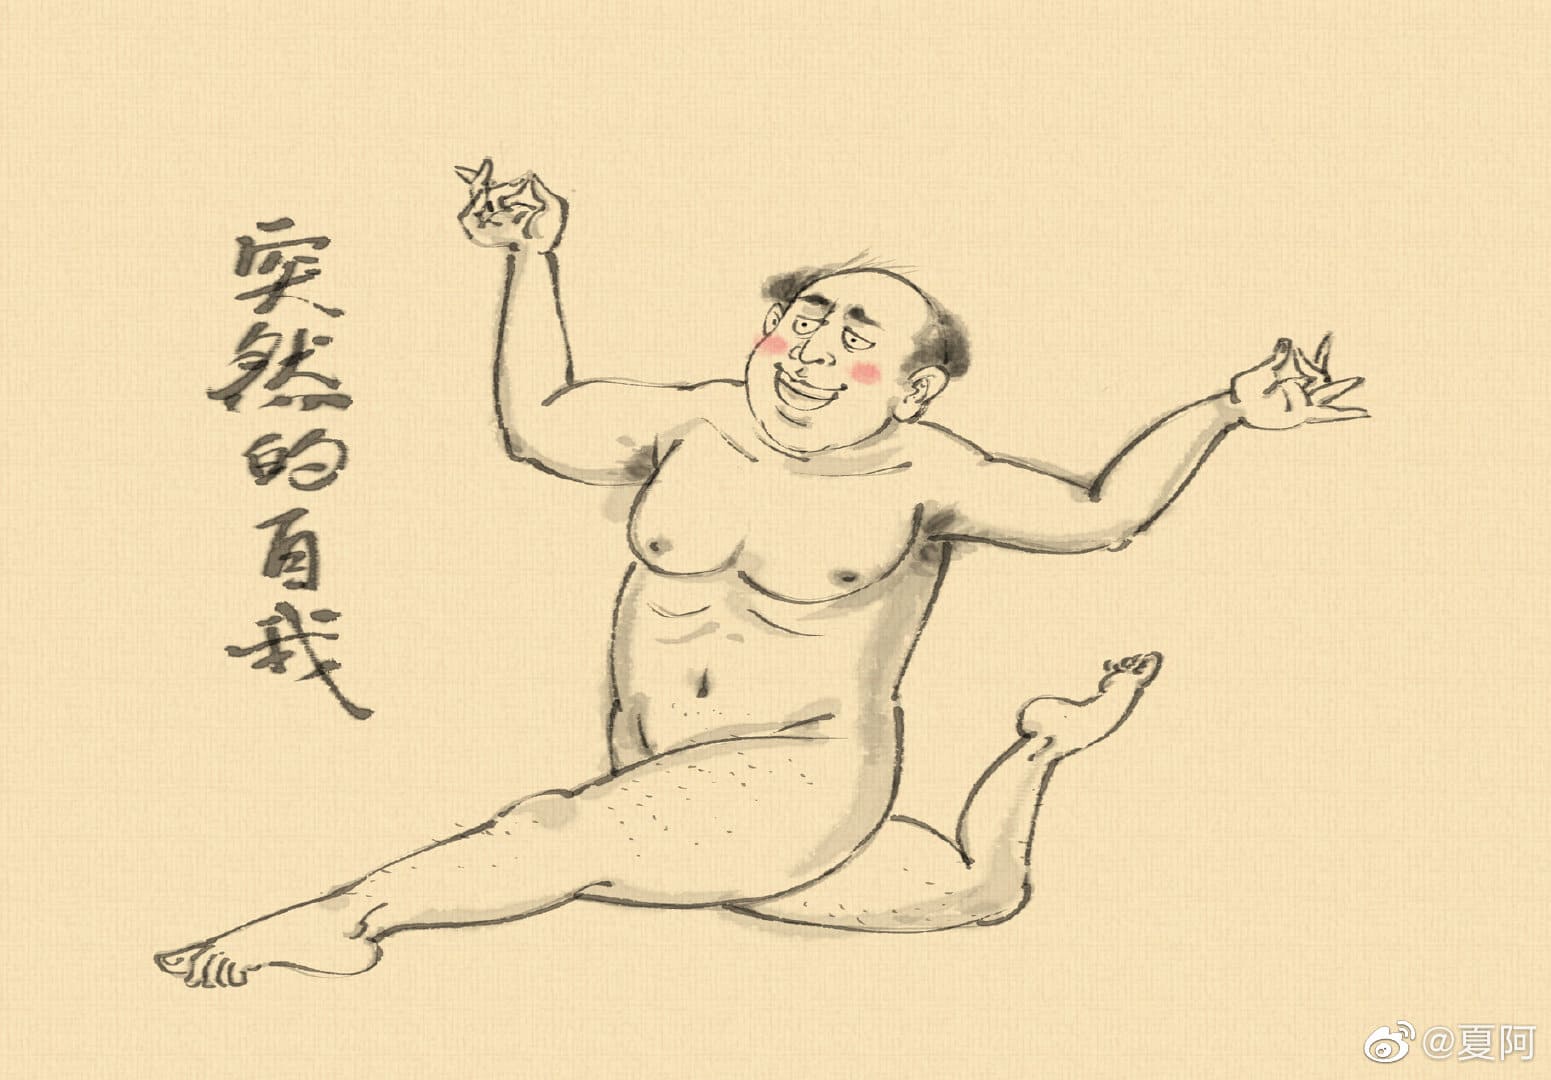 突然的自我
@夏阿